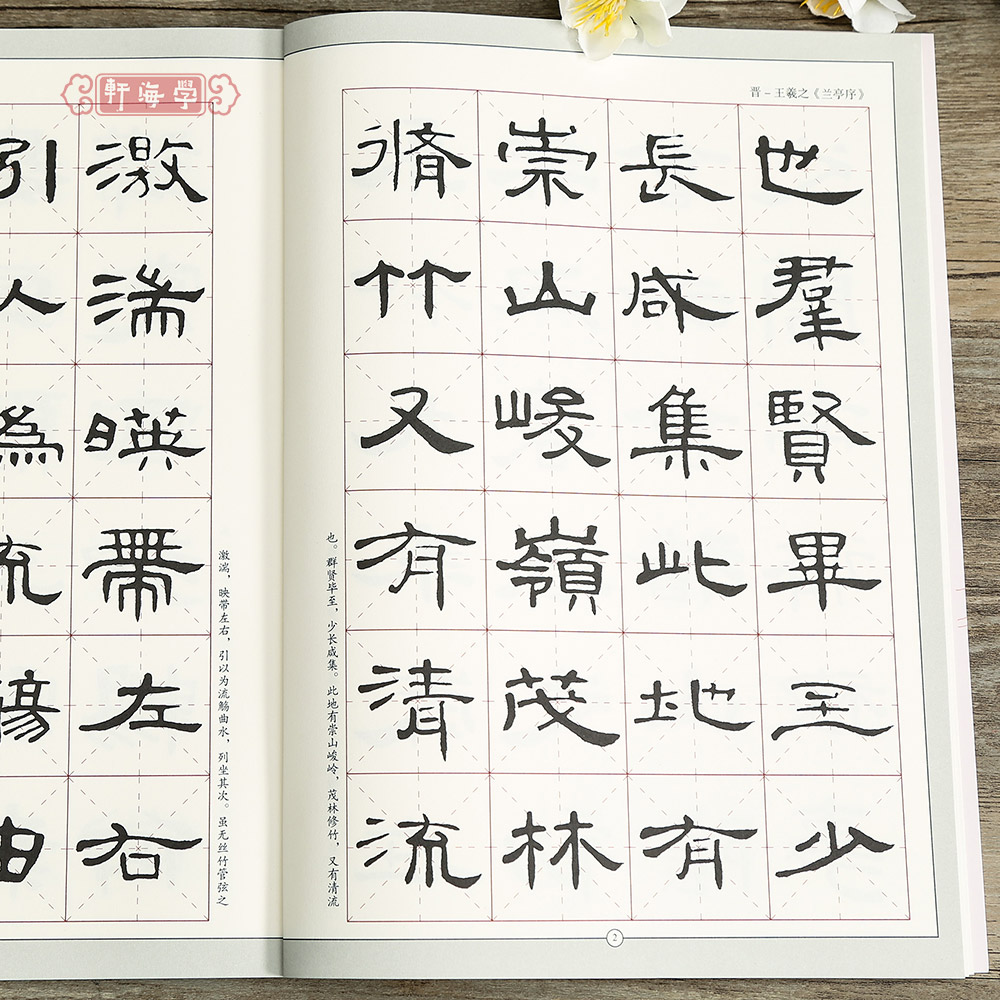 學海軒
晋－王羲之《兰亭序》
也羣賢畢至少
長咸集此地有
崇山峻嶺茂林
脩竹又有清流
也。群贤毕至，少长咸集。此地有崇山峻岭，茂林修竹，又有清流
2
激湍，映带左右，引以为流觞曲水，列坐其次。虽无丝竹管弦之
激湍暎帶左右
引以為流觴曲